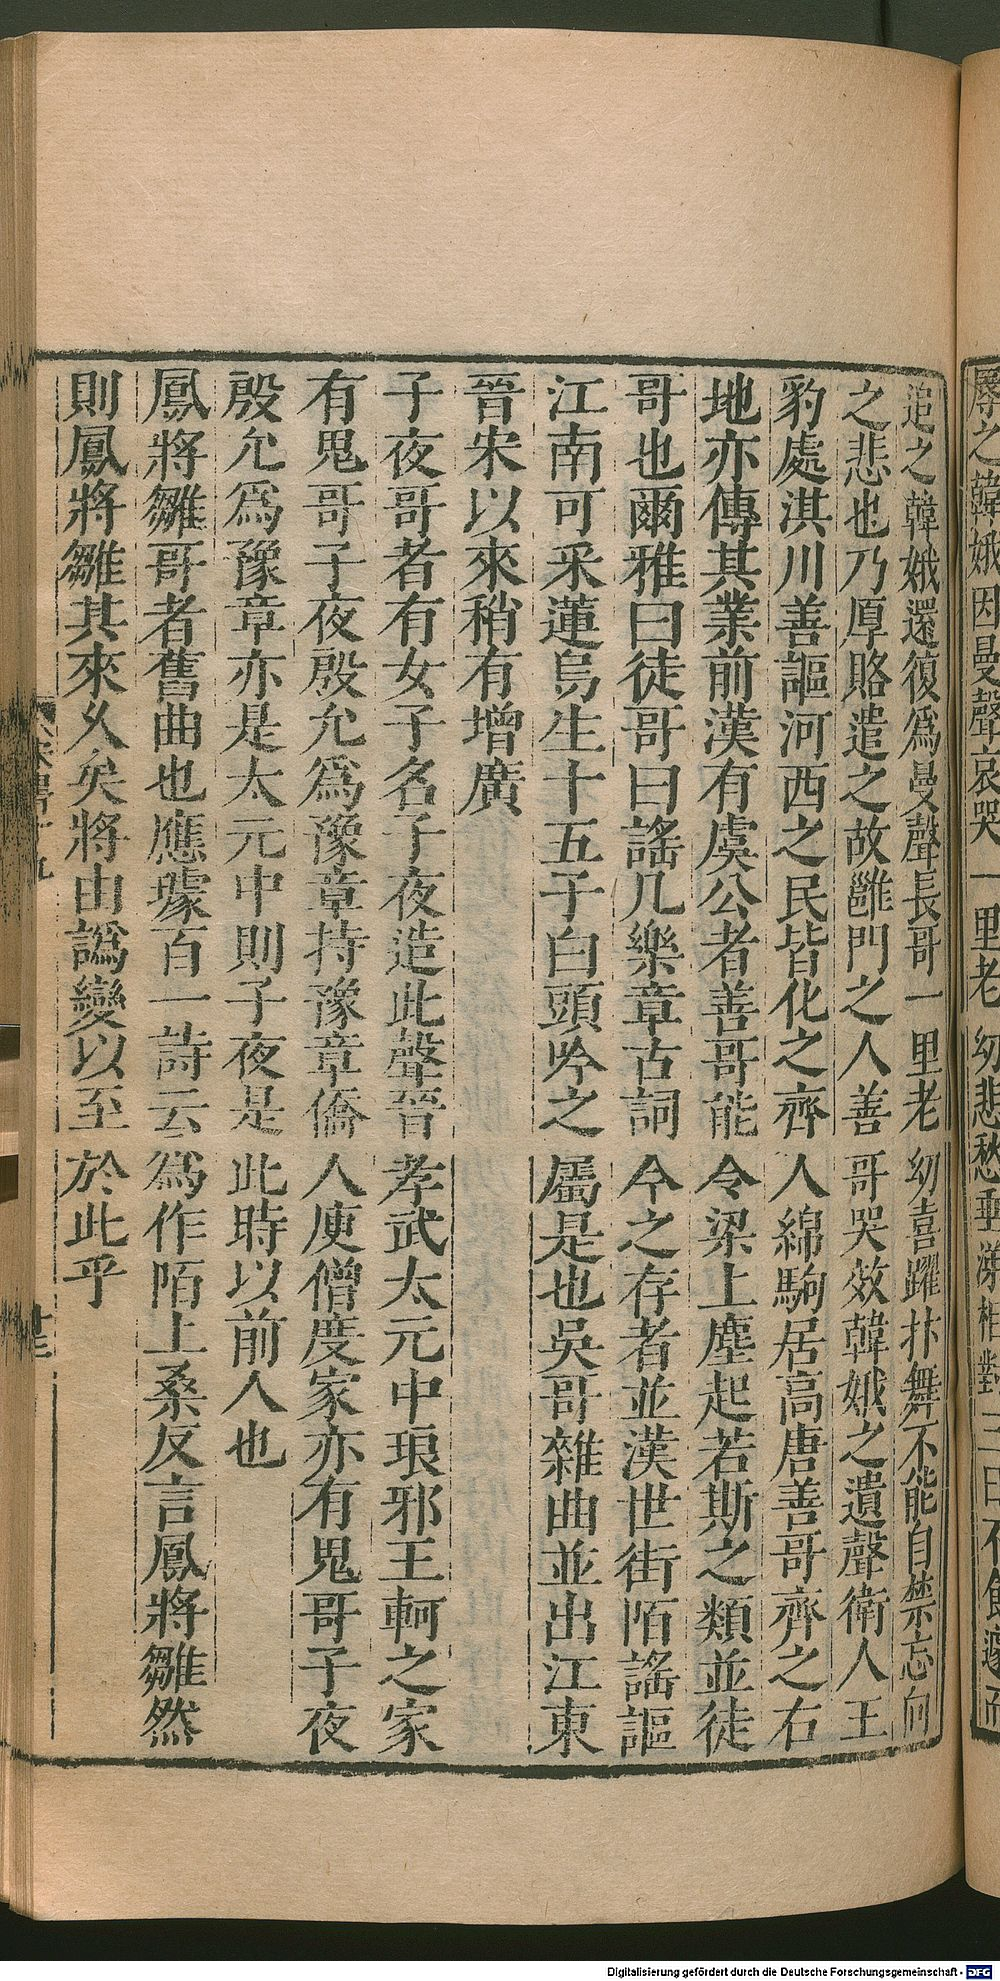 辱之韓娥因曼聲哀哭一里老幼悲愁垂涕相對三日不食遽而
追之韓娥還復爲曼聲長哥一里老幼喜躍抃舞不能自禁忘向
之悲也乃厚賂遣之故雝門之人善哥哭效韓娥之遺聲衛人王
豹處淇川善謳河西之民皆化之齊人綿駒居高唐善哥齊之右
地亦傳其業前漢有虞公者善哥能令梁上塵起若斯之類並徒
哥也爾雅曰徒哥曰謠凡樂章古詞今之存者並漢世街陌謠謳
江南可采蓮烏生十五子白頭吟之屬是也吳哥雜曲並出江東
晉宋以來稍有增廣
子夜哥者有女子名子夜造此聲晉孝武太元中琅邪王軻之家
有鬼哥子夜殷允爲豫章持豫章僑人庾僧度家亦有鬼哥子夜
殷允爲豫章亦是太元中則子夜是此時以前人也
鳳將雛哥者舊曲也應璩百一詩云爲作陌上桑反言鳳將雛然
則鳳將雛其來久矣將由譌變以至於此乎
Digitalisierung gefördert durch die Deutsche Forschungsgemeinschaft - DFG